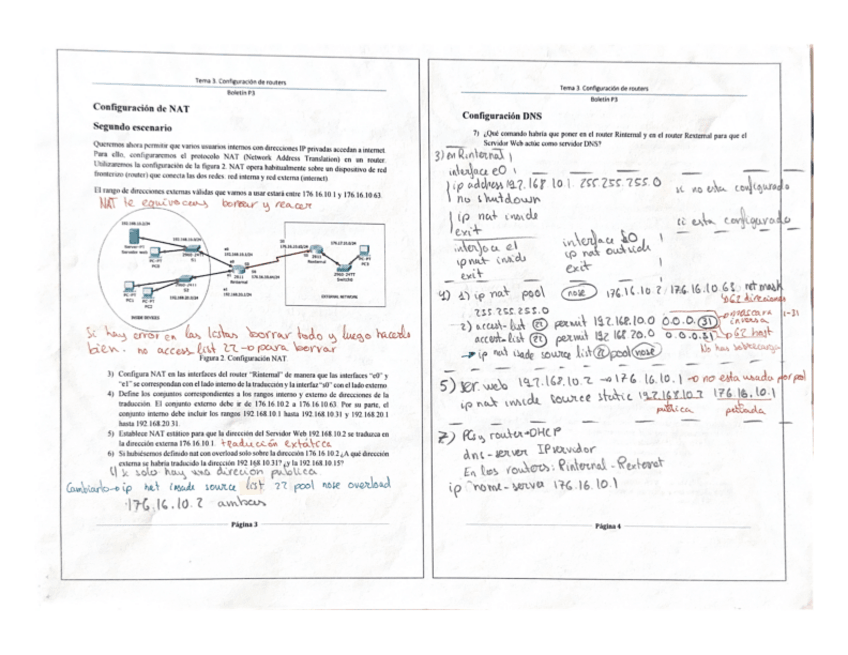 Tema 3. Configuración de routers
Boletín P3
Configuración de NAT
Segundo escenario
Queremos ahora permitir que varios usuarios internos con direcciones IP privadas accedan a internet.
Para ello, configuraremos el protocolo NAT (Network Address Translation) en un router.
Utilizaremos la configuración de la figura 2. NAT opera habitualmente sobre un dispositivo de red
fronterizo (router) que conecta las dos redes: red interna y red externa (internet)
El rango de direcciones externas válidas que vamos a usar estará entre 176.16.10.1 y 176.16.10.63.
NAT te equivocas borrar y reacer
192.168.10.0/24
Server-PT
Servidor web
PC-PT
PC0
PC-PT
PC1
PC-PT
PC2
INSIDE DEVICES
2811
Rinternal
2811
Rexternal
PC-PT
PC3
EXTERNAL NETWORK
Si hay error en las listas borrar todo y luego hacerlo
bien. no access list 22 → para borrar
Figura 2. Configuración NAT
3) Configura NAT en las interfaces del router "Rinternal" de manera que las interfaces "e0" y
"e1" se correspondan con el lado interno de la traducción y la interfaz "s0" con el lado externo
4) Define los conjuntos correspondientes a los rangos interno y externo de direcciones de la
traducción. El conjunto externo debe ir de 176.16.10.2 a 176.16.10.63. Por su parte, el
conjunto interno debe incluir los rangos 192.168.10.1 hasta 192.168.10.31 y 192.168.20.1
hasta 192.168.20.31.
5) Establece NAT estático para que la dirección del Servidor Web 192.168.10.2 se traduzca en
la dirección externa 176.16.10.1. traducción extática
6) Si hubiésemos definido nat con overload solo sobre la dirección 176.16.10.2 ¿A qué dirección
externa se habría traducido la dirección 192.168.10.31? ¿y la 192.168.10.15?
si solo hay una direcion publica
Cambiarlo → ip nat inside source list 22 pool nose overload
176.16.10.2 ambas
Página 3
Tema 3. Configuración de routers
Boletín P3
Configuración DNS
7) ¿Qué comando habría que poner en el router Rinternal y en el router Rexternal para que el
Servidor Web actúe como servidor DNS?
3) en Rinternal
interface e0
ip address 192.168.10.1 255.255.255.0 si no esta configurado
no shutdown
ip nat inside si esta configurado
exit
interface e1 interface S0
ip nat inside ip nat outside
exit exit
4) 1) ip nat pool nose 176.16.10.2 176.16.10.63 netmask
255.255.255.0 62 direciones
2) access-list 22 permit 192.168.10.0 0.0.0.31 → mascara inversa 1-31
access-list 22 permit 192.168.20.0 0.0.0.31 → 62 host
→ ip nat inside source list 22 pool nose No hay sobrecarga
5) ser. web 192.168.10.2 → 176.16.10.1 → no esta usado por pol
ip nat inside source static 192.168.10.2 176.16.10.1
publica privada
7) PCs y router → DHCP
dns-server IP servidor
En los routers: Rinternal - Rexternat
ip name-server 176.16.10.1
Página 4